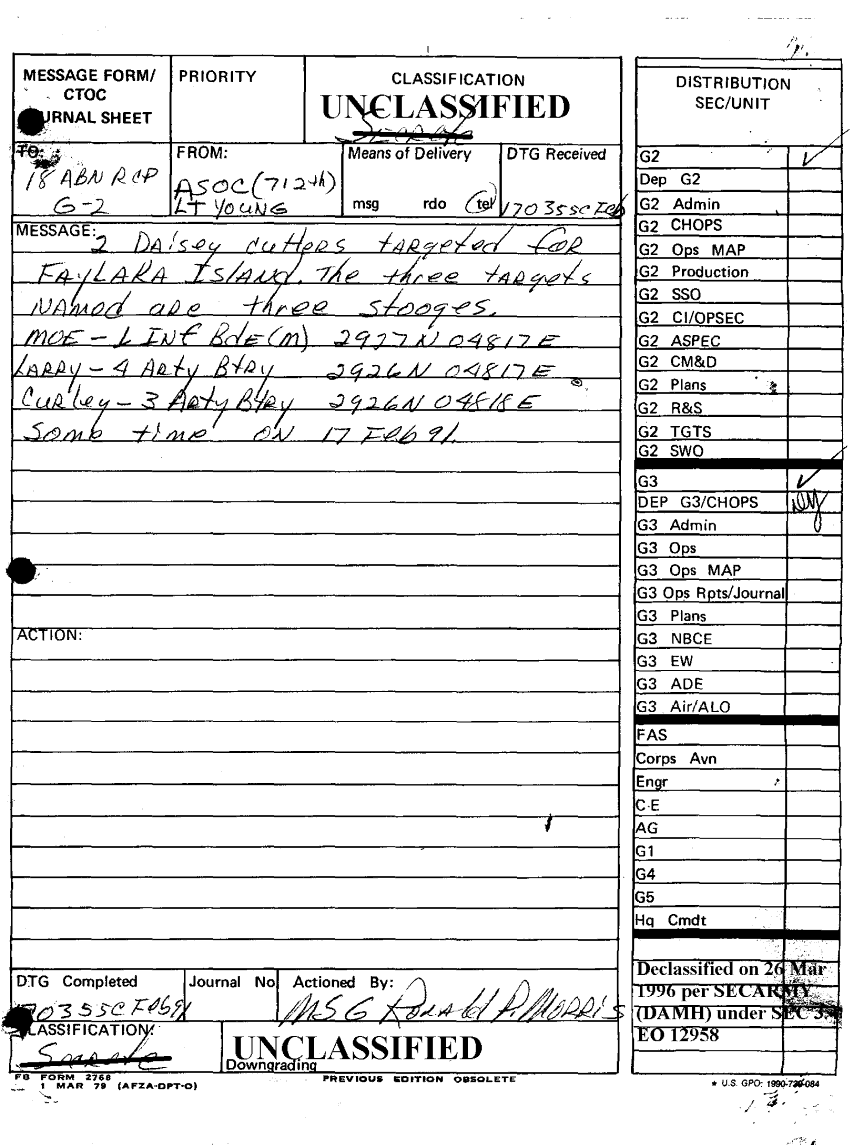 MESSAGE FORM/
CTOC
URNAL SHEET
PRIORITY
CLASSIFICATION
UNCLASSIFIED
TO:
18 ABN RCP
G-2
FROM:
ASOC (712th)
LT YOUNG
Means of Delivery
msg rdo tel
DTG Received
170355C Feb
MESSAGE:
2 Daisey cutters targeted for
FAYLAKA ISLAND. The three targets
NAMod are three stooges.
MOE - 1 INf Bde (M) 2927N 04817E
LARRY - 4 Arty Btry 2926N 04817E
Curley - 3 Arty Btry 2926N 04818E
Some time ON 17 Feb 91.
ACTION:
DTG Completed
70355C Feb91
Journal No
Actioned By:
MSG Ronald P. MORRIS
LASSIFICATION:
UNCLASSIFIED
Downgrading
FB FORM 2768
1 MAR 79 (AFZA-DPT-O)
PREVIOUS EDITION OBSOLETE
DISTRIBUTION
SEC/UNIT
G2
Dep G2
G2 Admin
G2 CHOPS
G2 Ops MAP
G2 Production
G2 SSO
G2 CI/OPSEC
G2 ASPEC
G2 CM&D
G2 Plans
G2 R&S
G2 TGTS
G2 SWO
G3
DEP G3/CHOPS
G3 Admin
G3 Ops
G3 Ops MAP
G3 Ops Rpts/Journal
G3 Plans
G3 NBCE
G3 EW
G3 ADE
G3 Air/ALO
FAS
Corps Avn
Engr
C-E
AG
G1
G4
G5
Hq Cmdt
Declassified on 26 Mar
1996 per SECARMY
(DAMH) under SEC 3.4
EO 12958
★ U.S. GPO: 1990-084